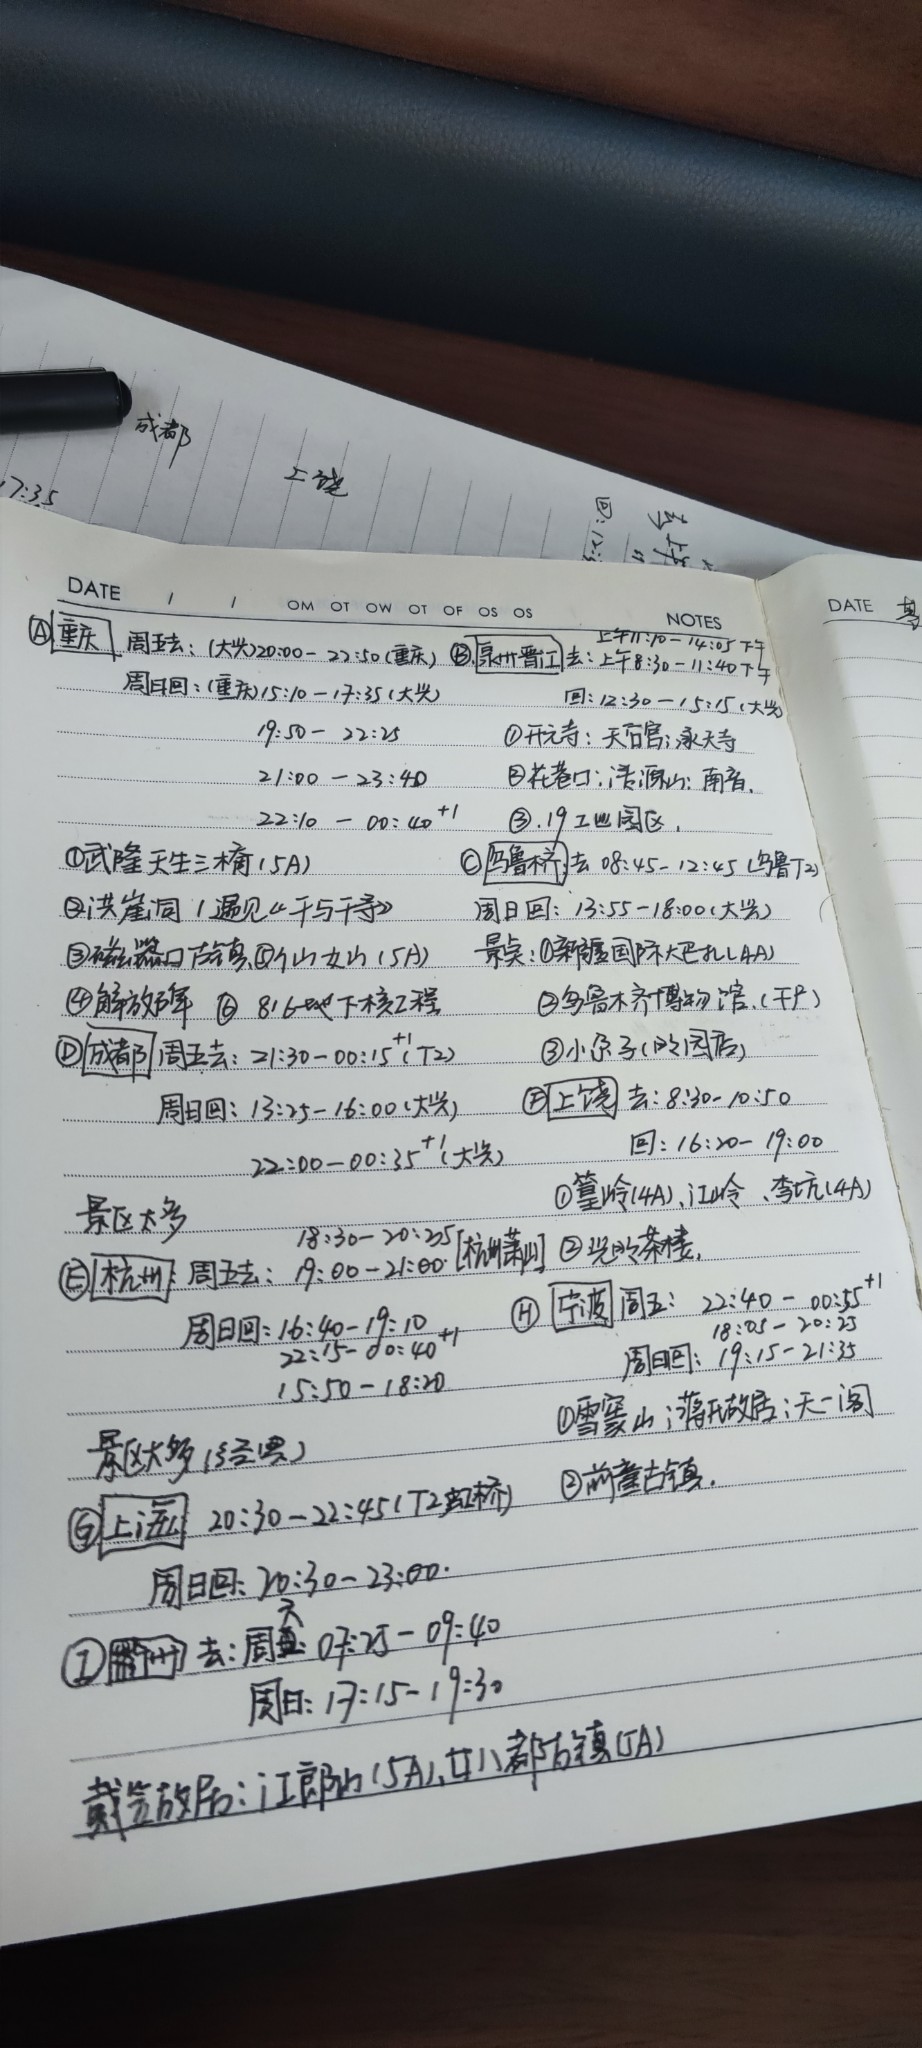 成都
上饶
7:35
DATE / / OM OT OW OT OF OS OS NOTES
DATE
Ⓐ 重庆 周五去：(大兴)20:00-22:50(重庆)
周日回：(重庆)15:10-17:35(大兴)
19:50-22:25
21:00-23:40
22:10-00:40+1
①武隆天生三桥(5A)
②洪崖洞/遇见《千与千寻》
③磁器口古镇、⑤仙女山(5A)
④解放碑 ⑥816地下核工程
上午11:10-14:05下午
Ⓑ 泉州晋江 去：上午8:30-11:40下午
回：12:30-15:15(大兴)
①开元寺；天后宫；承天寺
②花巷口；清源山；南音.
③.19工业园区.
Ⓒ 乌鲁木齐：去 08:45-12:45(乌鲁T2)
周日回：13:55-18:00(大兴)
景点：①新疆国际大巴扎(4A)
②乌鲁木齐博物馆.(干尸)
Ⓓ 成都 周五去：21:30-00:15+1(T2)
周日回：13:25-16:00(大兴)
22:00-00:35+1(大兴)
景区太多
Ⓕ 上饶 去：8:30-10:50
回：16:20-19:00
①篁岭(4A)、江岭、李坑(4A)
18:30-20:25
Ⓔ 杭州：周五去：19:00-21:00[杭州萧山]
周日回：16:40-19:10
22:15-00:40+1
15:50-18:20
景区太多(经典)
Ⓗ 宁波 周五：22:40-00:55+1
18:05-20:25
周日回：19:15-21:35
①雪窦山；蒋氏故居；天一阁
②前童古镇.
Ⓖ 上海 20:30-22:45(T2虹桥)
周日回：20:30-23:00.
Ⓘ 衢州 去：周六 07:25-09:40
周日：17:15-19:30
戴笠故居；江郎山(5A)、廿八都古镇(5A)